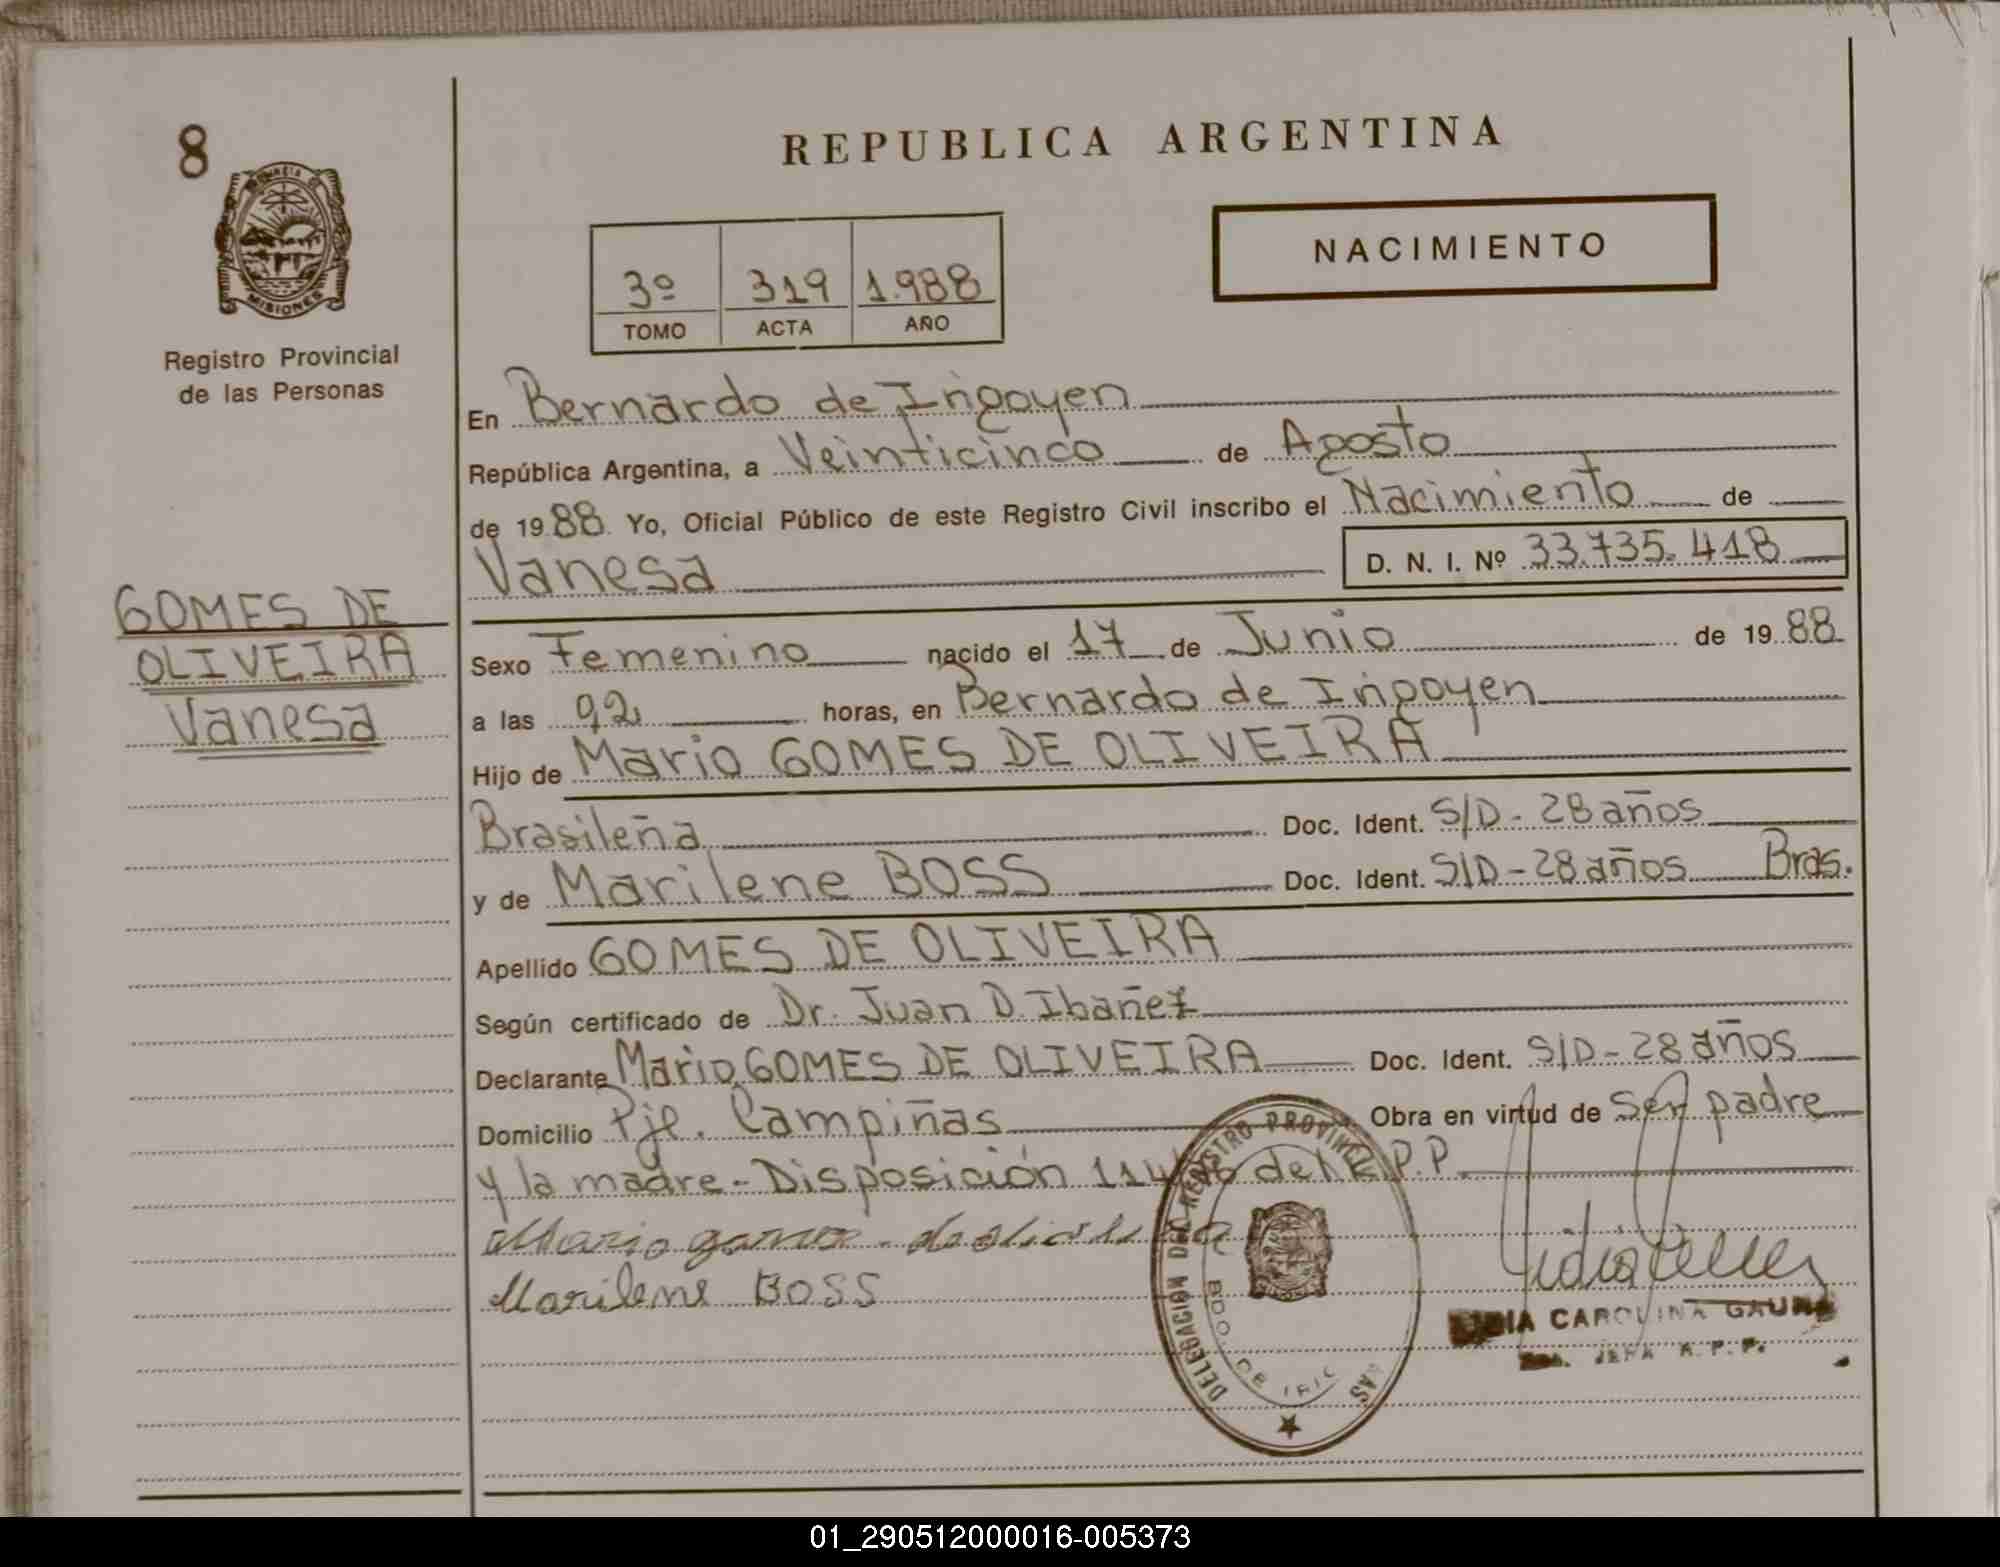 8
MISIONES
Registro Provincial
de las Personas
GOMES DE
OLIVEIRA
Vanesa
REPUBLICA ARGENTINA
3º 319 1.988
TOMO ACTA AÑO
NACIMIENTO
En Bernardo de Irigoyen
República Argentina, a Veinticinco de Agosto
de 1988 Yo, Oficial Público de este Registro Civil inscribo el Nacimiento de
Vanesa D. N. I. Nº 33.735.418
Sexo Femenino nacido el 17 de Junio de 1988
a las horas, en Bernardo de Irigoyen
Hijo de Mario GOMES DE OLIVEIRA
Brasileña Doc. Ident. S/D - 28 años
y de Marilene BOSS Doc. Ident. S/D - 28 años Bras.
Apellido GOMES DE OLIVEIRA
Según certificado de Dr. Juan D. Ibañez
Declarante Mario GOMES DE OLIVEIRA Doc. Ident. S/D - 28 años
Domicilio Pje. Campiñas Obra en virtud de ser padre
y la madre - Disposición del R.P.P.
Mario gomes de oliveira
Marilene BOSS
DELEGACION DEL REGISTRO PROVINCIAL
BDO. DE IRIG
LIDIA CAROLINA GAUNA
JEFA R.P.P.
01_290512000016-005373